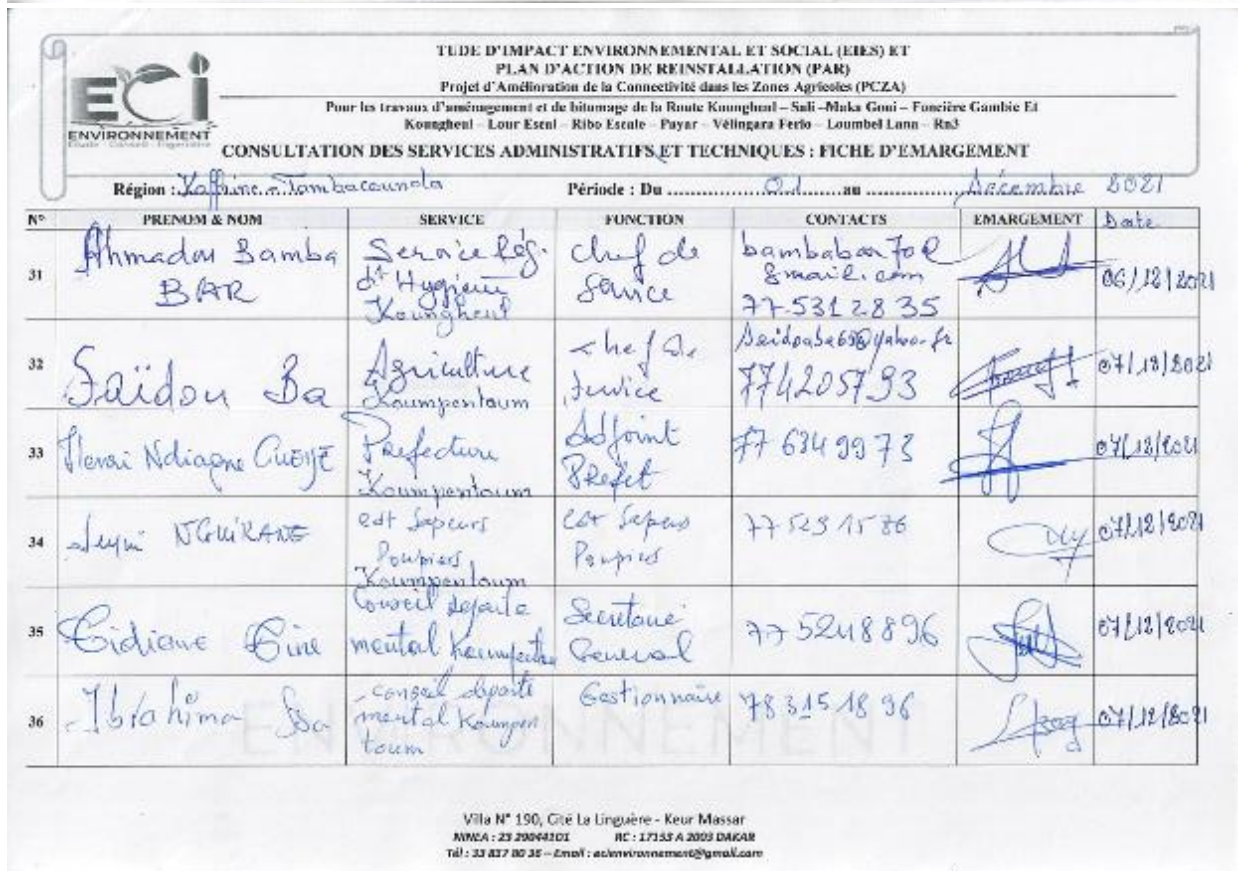 ECI
ENVIRONNEMENT
Etude - Conseil - Ingénierie
TUDE D'IMPACT ENVIRONNEMENTAL ET SOCIAL (EIES) ET
PLAN D'ACTION DE REINSTALLATION (PAR)
Projet d'Amélioration de la Connectivité dans les Zones Agricoles (PCZA)
Pour les travaux d'aménagement et de bitumage de la Route Koungheul – Sali –Maka Goui – Foncière Gambie Et
Koungheul – Lour Escal – Ribo Escale – Payar – Vélingara Ferlo – Loumbel Lana – Rn3
CONSULTATION DES SERVICES ADMINISTRATIFS ET TECHNIQUES : FICHE D'EMARGEMENT
Région : Kaffrine - Tambacounda Période : Du 01 au Décembre 2021
N° PRENOM & NOM SERVICE FONCTION CONTACTS EMARGEMENT Date
31 Ahmadou Bamba BAR
Service
d'Hygiène
Koungheul
chef de
service
gmail.com
77-531 28 35
06/12/2021
32 Saïdou Ba
Agriculture
Koumpentoum
chef de
service
774205793
07/12/2021
33 Ndiagne GUEYE
Prefecture
Koumpentoum
Adjoint
Prefet
77 634 99 73
07/12/2021
34
Sapeurs
Koumpentoum
07/12/2021
35
Conseil departe
mental
Secretaire
General
77 5248896
07/12/2021
36 Ibrahima Ba
conseil departe
mental Koumpen
toum
Gestionnaire
78 315 18 96
07/12/2021
ENVIRONNEMENT
Villa N° 190, Cité La Linguère - Keur Massar
NINEA : 23 29044101 RC : 17153 A 2003 DAKAR
Tél : 33 837 80 36 – Email : acienvironnement@gmail.com